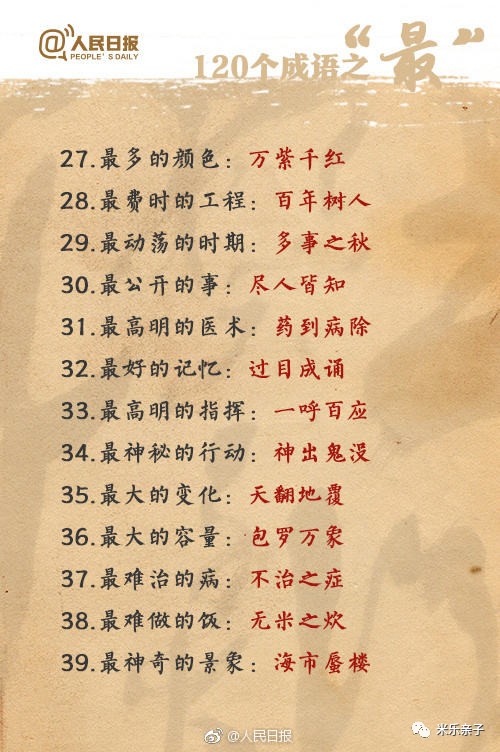 @人民日报
PEOPLE'S DAILY
120个成语之“最”
27.最多的颜色：万紫千红
28.最费时的工程：百年树人
29.最动荡的时期：多事之秋
30.最公开的事：尽人皆知
31.最高明的医术：药到病除
32.最好的记忆：过目成诵
33.最高明的指挥：一呼百应
34.最神秘的行动：神出鬼没
35.最大的变化：天翻地覆
36.最大的容量：包罗万象
37.最难治的病：不治之症
38.最难做的饭：无米之炊
39.最神奇的景象：海市蜃楼
@人民日报
米乐亲子